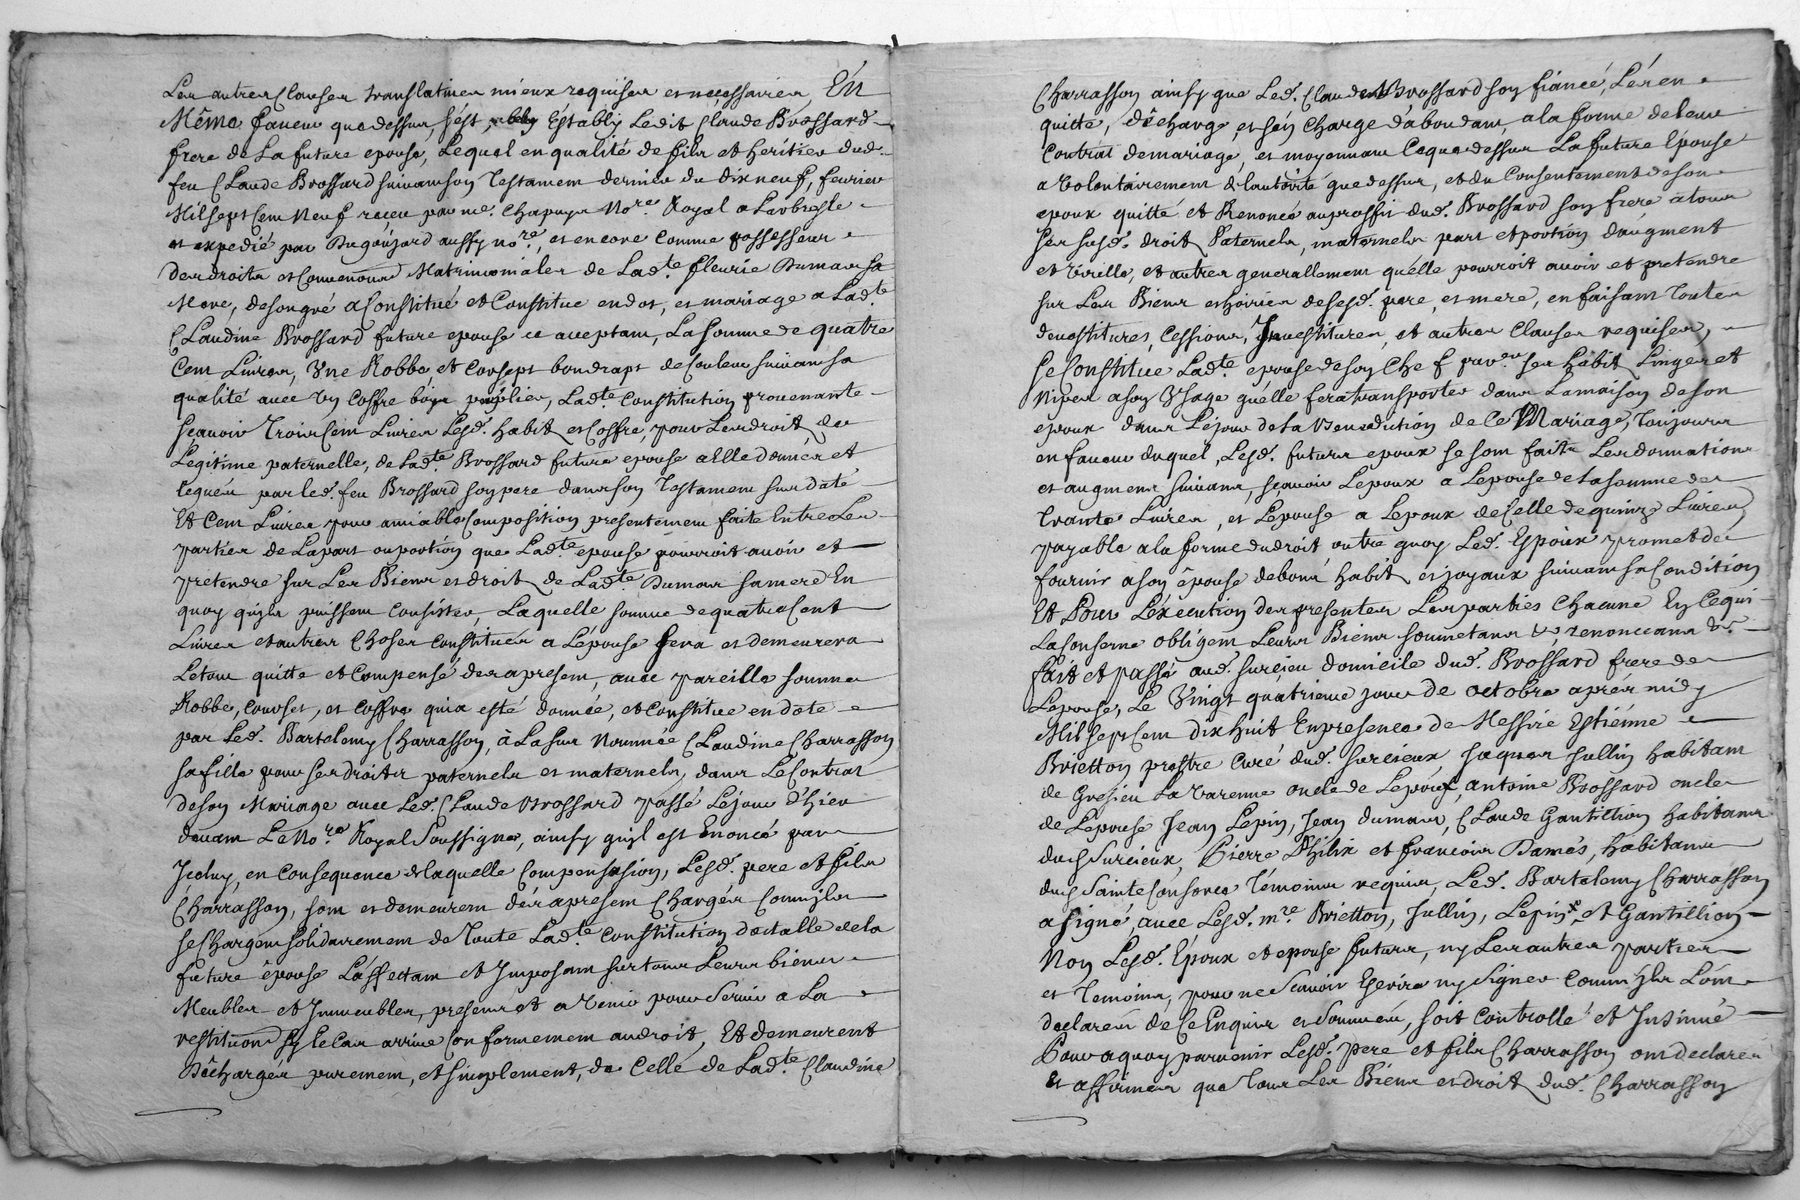 Les autres Clauses translatives mieux requises et necessaires En
Même faveur que dessus, s'est Establi Ledit Claude Brossard
frere de La future epouse, Lequel en qualité de fils et heritier dud.
feu Claude Brossard suivant son Testament dernier du dix neuf, fevrier
Mil sept Cent Neuf receu par me. Chapuys Nore. Royal a Larbresle
et expedié par Dugoujard aussy nore., et encore Comme possesseur
des droits et Conventions Matrimoniales de Ladte fleurie Dumas sa
Mere, de son gré a Constitué et Constitue en dot, et mariage a Ladte
Claudine Brossard future epouse ce acceptant, La somme de quatre
Cent Livres, Une Robbe et Corsept bon drapt de Couleur suivant sa
qualité avec un Coffre bois Lad.te Constitution provenante
scavoir Trois Cent Livres Lesd. habit et Coffre, pour Les droit de
Legitime paternelle, de Ladte Brossard future epouse a Elle donnés et
legués par led. feu Brossard son pere dans son Testament sus daté
Et Cent Livres pour amiable Composition presentement faite Entre Les
parties de La part ou portion que Ladte epouse pourroit avoir et
pretendre sur Les Biens et droit de Ladte Dumas sa mere En
quoy qu'ils puissent Consister, Laquelle somme de quatre Cent
Livres et autres Choses Constituées a L'épouse sera et demeurera
Le tout quitte et Compensé des a present, avec pareille somme
Robbe, Corset, et Coffre qui a esté donnée, et Constitué en dote
par Led. Bartelemy Charrasson, à La sur Nommée Claudine Charrasson
sa fille pour ses droits paternels et maternels, dans Le Contrat
de son Mariage avec Led. Claude Brossard passé Lejour d'hier
devant Le Nore Royal Soussigné, ainsy qu'il est Enoncé par
Jceluy, en Consequence de laquelle Compensasion, Lesd. pere et fils
Charrasson, sont et demeurent dés a present Chargés Comm'ils
se Chargent solidairement de Toute Ladte Constitution dotalle de la
future êpouse L'affectant et Jmposant sur tous Leurs biens
Meubles et Jmmeubles, presents et a Venir pour Servir a La
restitution sy le Cas arrive Conformement au droit, Et demeurent
Dêchargés purement, et simplement, de Celle de Ladte Claudine
Charrasson ainsy que Led. Claude Brossard son fiancé, Les en
quitte, dêcharge, et s'en Charge d'abondant, a la forme de leur
Contrat de mariage, et moyennant Ce que dessus La future Epouse
a Volontairement de l'autorité que dessus, et du Consentement de son
epoux quitté et Renoncé au proffit dud. Brossard son frere a tous
ses susd. droit Paternels, maternels part et portion d'augment
et Virille, et autres generallement qu'elle pourroit avoir et pretendre
sur Les Biens et hoiries de sesd. pere, et mere, en faisant Toutes
devestitures, Cessions, Jnvestitures, et autres Clauses requises,
se Constitue Ladte epouse de son Chef ses habit Linges et
Nipes a son Usage qu'elle fera transporter dans La maison de son
epoux dans Lejour de La Benediction de Ce Mariage, Toujours
en faveur duquel, Lesd. futurs epoux se sont faits Les donnations
et augment suivans, scavoir L'epoux a L'epouse de La somme de
trante Livres, et L'epouse a L'epoux de Celle de quinze Livres
payable a la forme du droit outre quoy Led. Epoux promet de
fournir a son êpouse de bons habit et joyaux suivant sa Condition
Et Pour L'éxecution des presentes Les parties Chacune En Ce qui
La Conserne obligent Leurs Biens soumetans &c, renonceans &c
fait et passé, aud. Surcieu domicile dud. Brossard frere de
Lepouse, Le Vingt quatrieme jour de octobre aprés midy
Mil sept Cent dix huit En presence de Messire Estiénne
Brietton prestre Curé dud. Surcieux, Jaques Jullin habitant
de Gresieu La Varenne oncle de L'epoux, antoine Brossard oncle
de L'epouse Jean Lepin, Jean dumas, Claude Gantillion habitans
dud. Surcieux, Pierre Philix et francois Damés, habitans
dud. Sainte Consorce Témoins requis, Led. Bartelemy Charrasson
a signé, avec Lesd. mre. Brietton, Jullin, Lepin, et Gantillion
Non Lesd. Epoux et epouse futurs, ny Les autres parties
et Temoins, pour ne Scavoir Escrire ny Signer Comm'ils L'ont
declaré de Ce Enquis et Sommés, soit Controllé et Jnsinué
Pour a quoy parvenir Lesd. pere et fils Charrasson ont declarés
Et affirmés que Tous Les Biens et droit dud. Charrasson